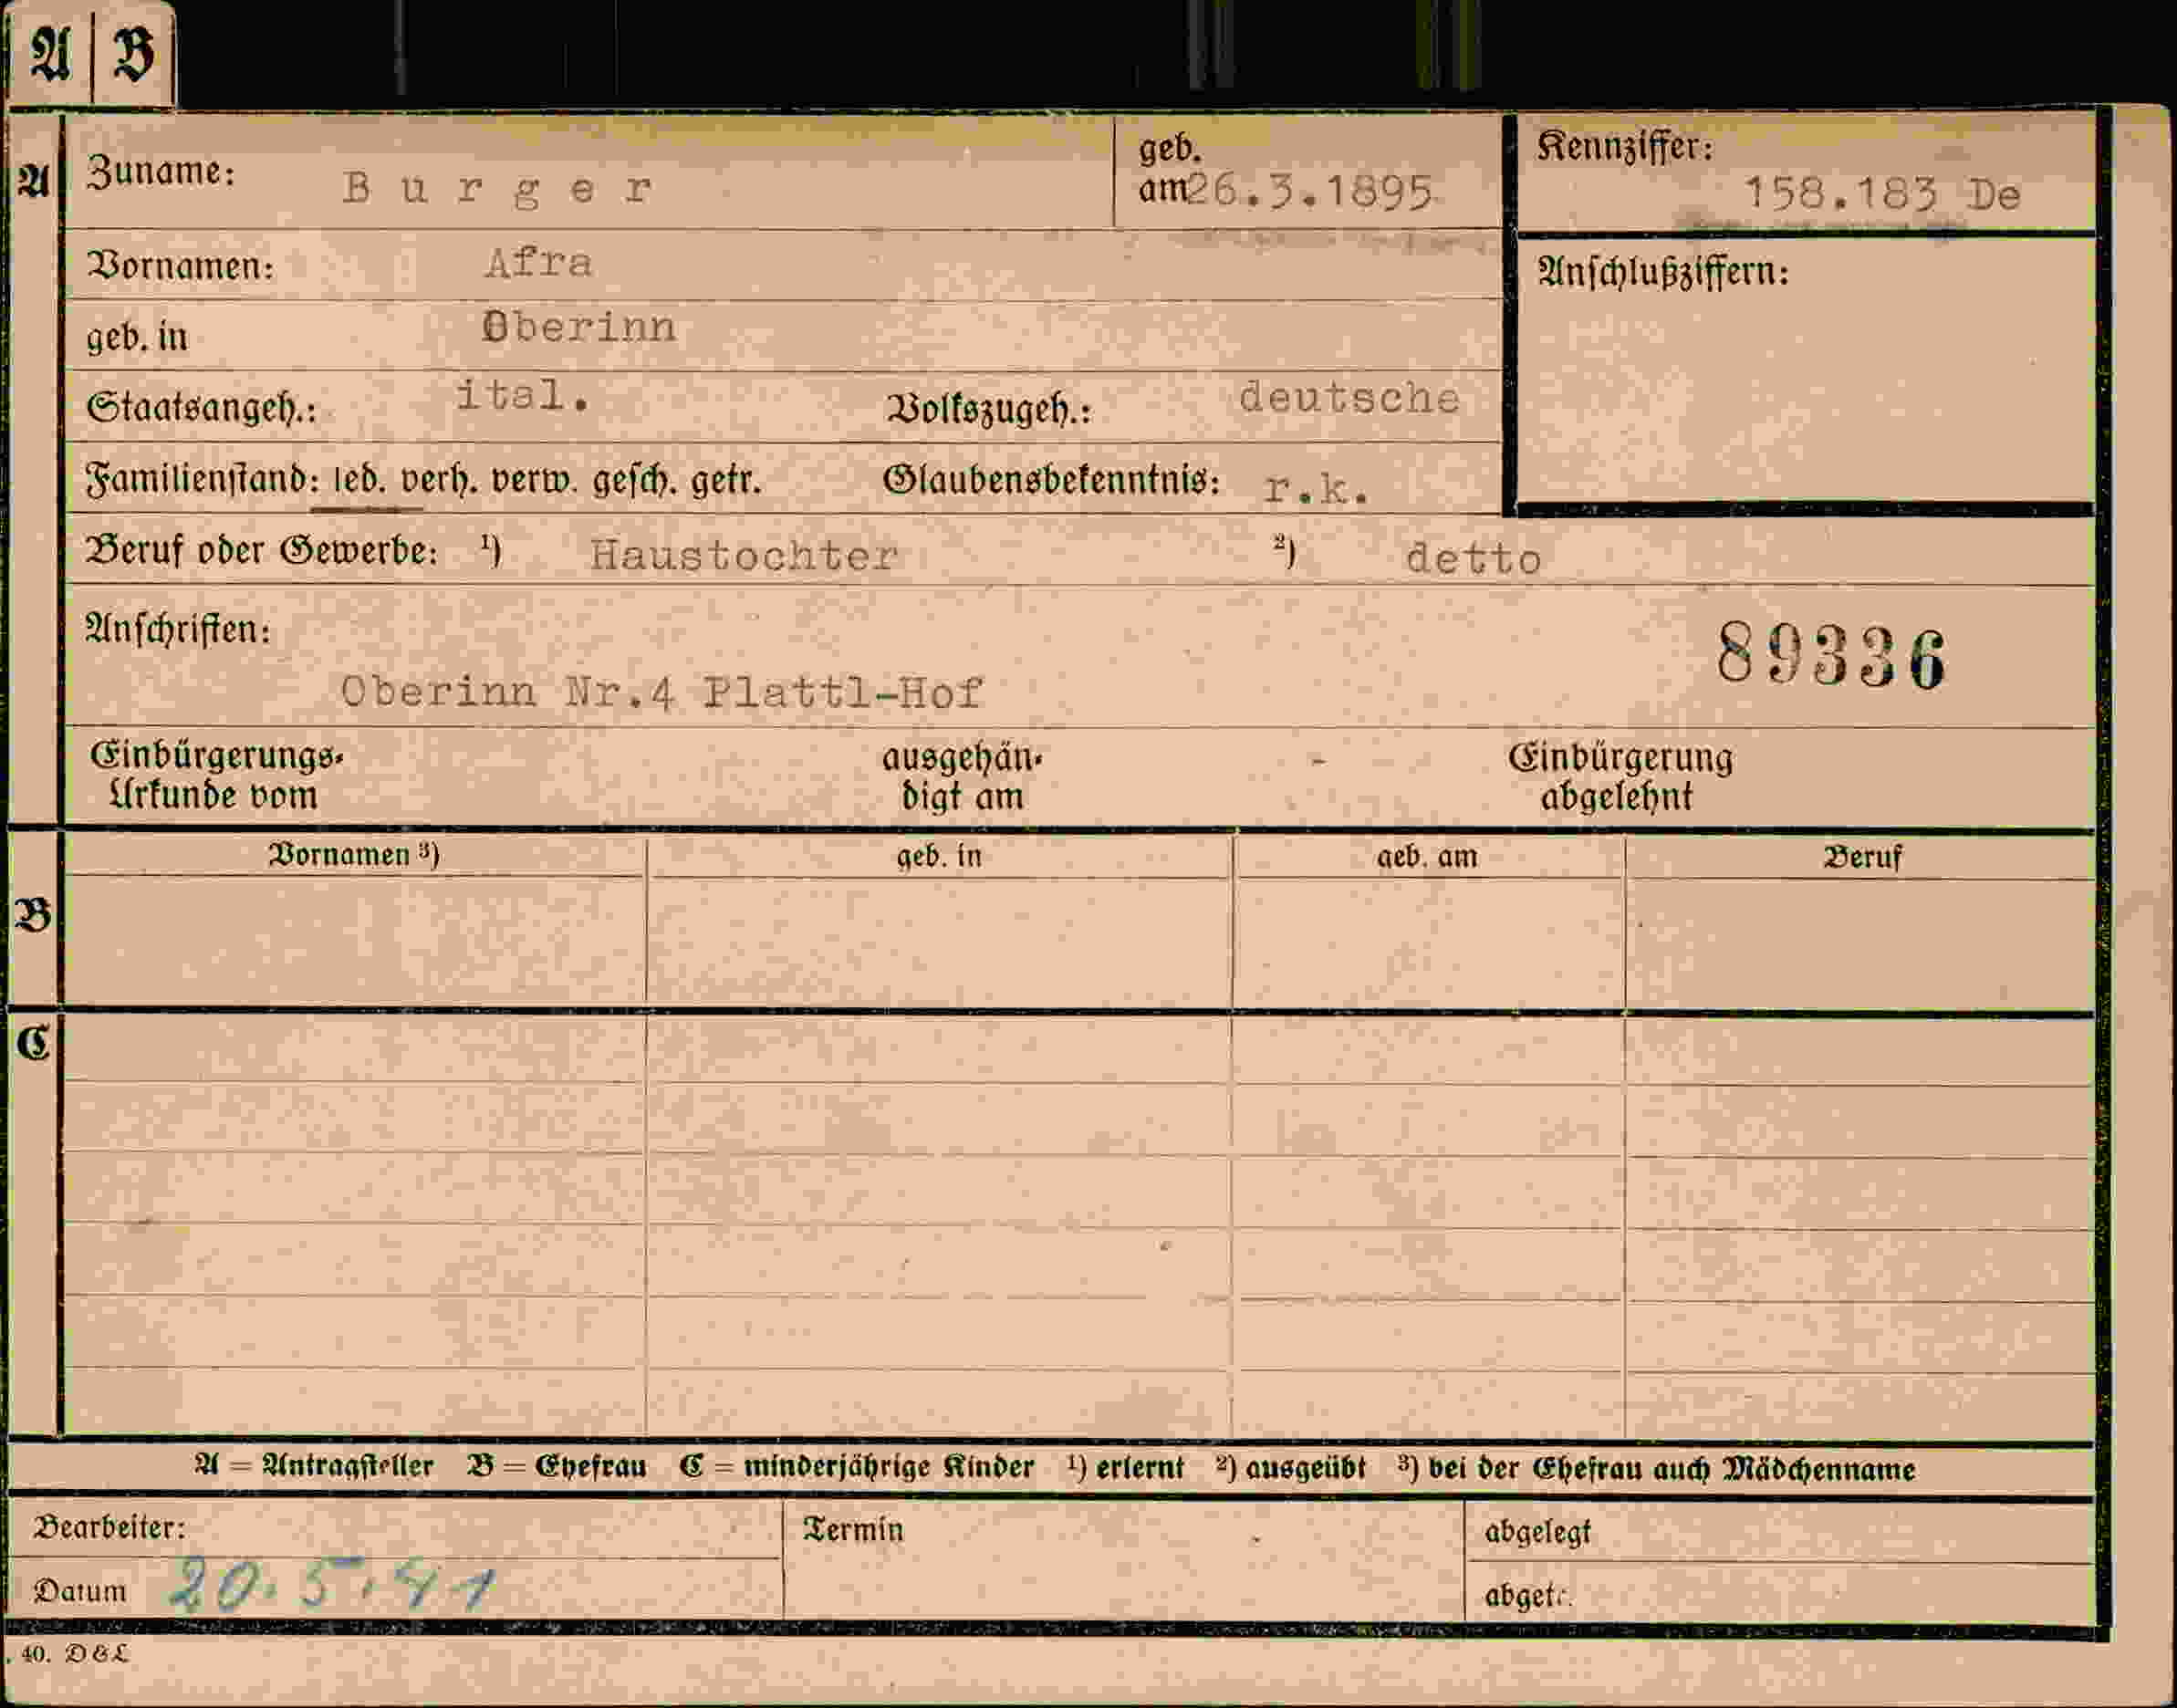 A | B
A
Zuname: Burger geb. am 26.3.1895 Kennziffer: 158.183 De
Vornamen: Afra Anschlußziffern:
geb. in Oberinn
Staatsangeh.: ital. Volkszugeh.: deutsche
Familienstand: led. verh. verw. gesch. getr. Glaubensbekenntnis: r.k.
Beruf oder Gewerbe: ¹) Haustochter ²) detto
Anschriften: 89336
Oberinn Nr.4 Plattl-Hof
Einbürgerungs- ausgehän- - Einbürgerung
Urkunde vom digt am abgelehnt
Vornamen ³) geb. in geb. am Beruf
B
C
A = Antragsteller B = Ehefrau C = minderjährige Kinder ¹) erlernt ²) ausgeübt ³) bei der Ehefrau auch Mädchenname
Bearbeiter: Termin abgelegt
Datum 20.5.41 abgetr.
. 40. D & L